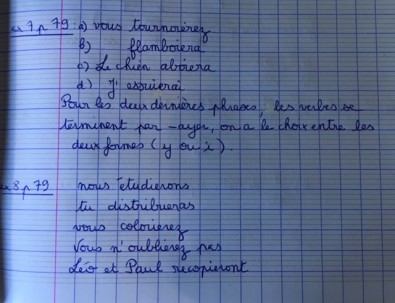 ex 7 p 79 : a) vous tournoierez
b) flamboiera
c) Le chien aboiera
d) J'essuierai
Pour les deux dernières phrases, les verbes se
terminent par -ayer, on a le choix entre les
deux formes (y ou i).
ex 8 p 79 nous étudierons
tu distribueras
vous colorierez
Vous n'oublierez pas
Léo et Paul recopieront